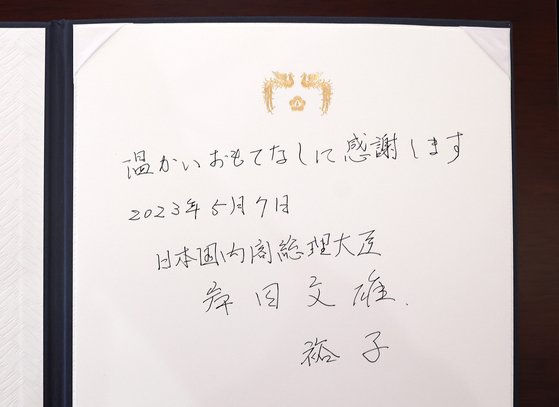 温かいおもてなしに感謝します
2023年5月7日
日本国内閣総理大臣
岸田文雄.
裕子